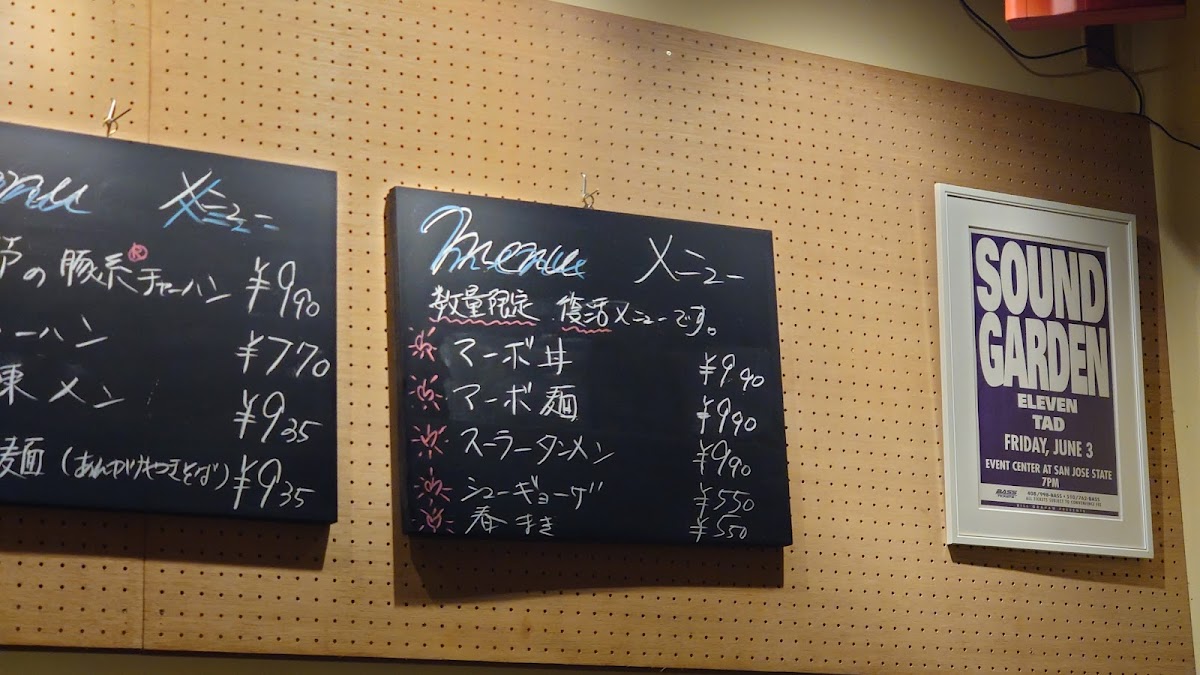 メニュー
の 豚系® チャーハン ¥990
ーハン ¥770
東メン ¥935
麺 (あんかけやきそば) ¥935
Menu メニュー
数量限定 復活メニューです。
マーボ丼 ¥990
マーボ麺 ¥990
スーラータンメン ¥990
シューギョーザ ¥550
春まき ¥550
SOUND
GARDEN
ELEVEN
TAD
FRIDAY, JUNE 3
EVENT CENTER AT SAN JOSE STATE
7PM
BASS 408/998-BASS • 510/762-BASS